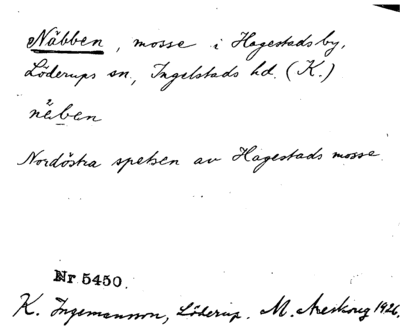 Näbben, mosse i Hagestads by,
Löderups sn, Ingelstads hd. (K.)
näben
Nordöstra spetsen av Hagestads mosse.
Nr 5450.
K. Ingemansson, Löderup. M. Areskoug 1926.